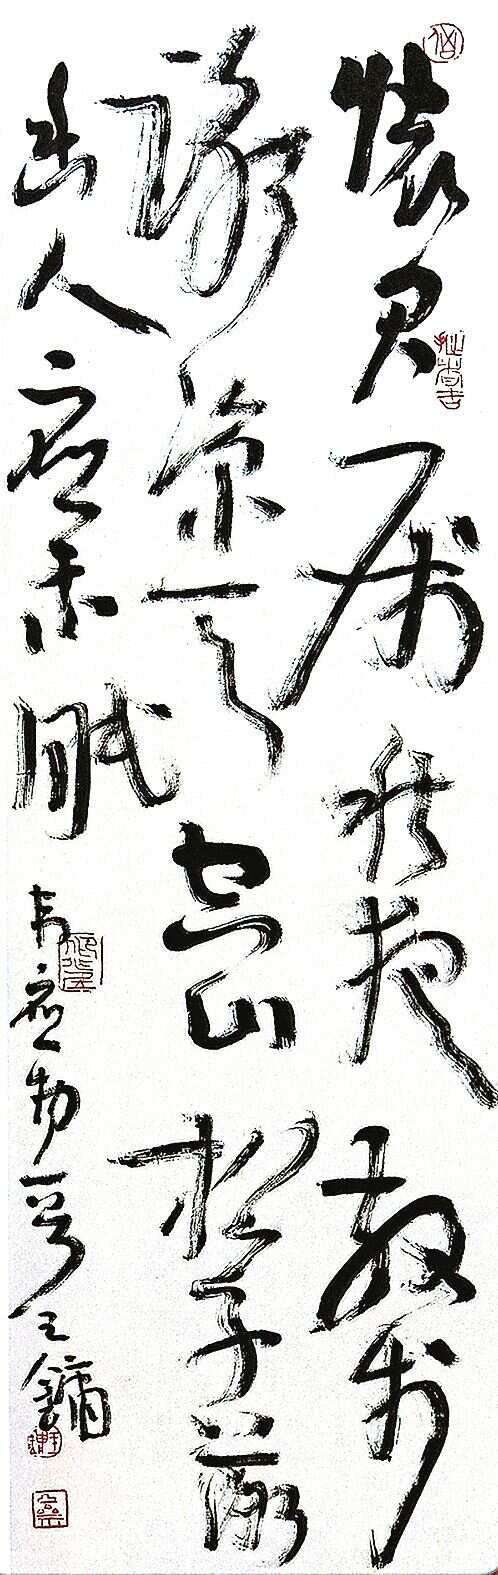 懷君屬秋夜散步
詠涼天空山松子落
幽人應未眠
韋應物一首王鏞